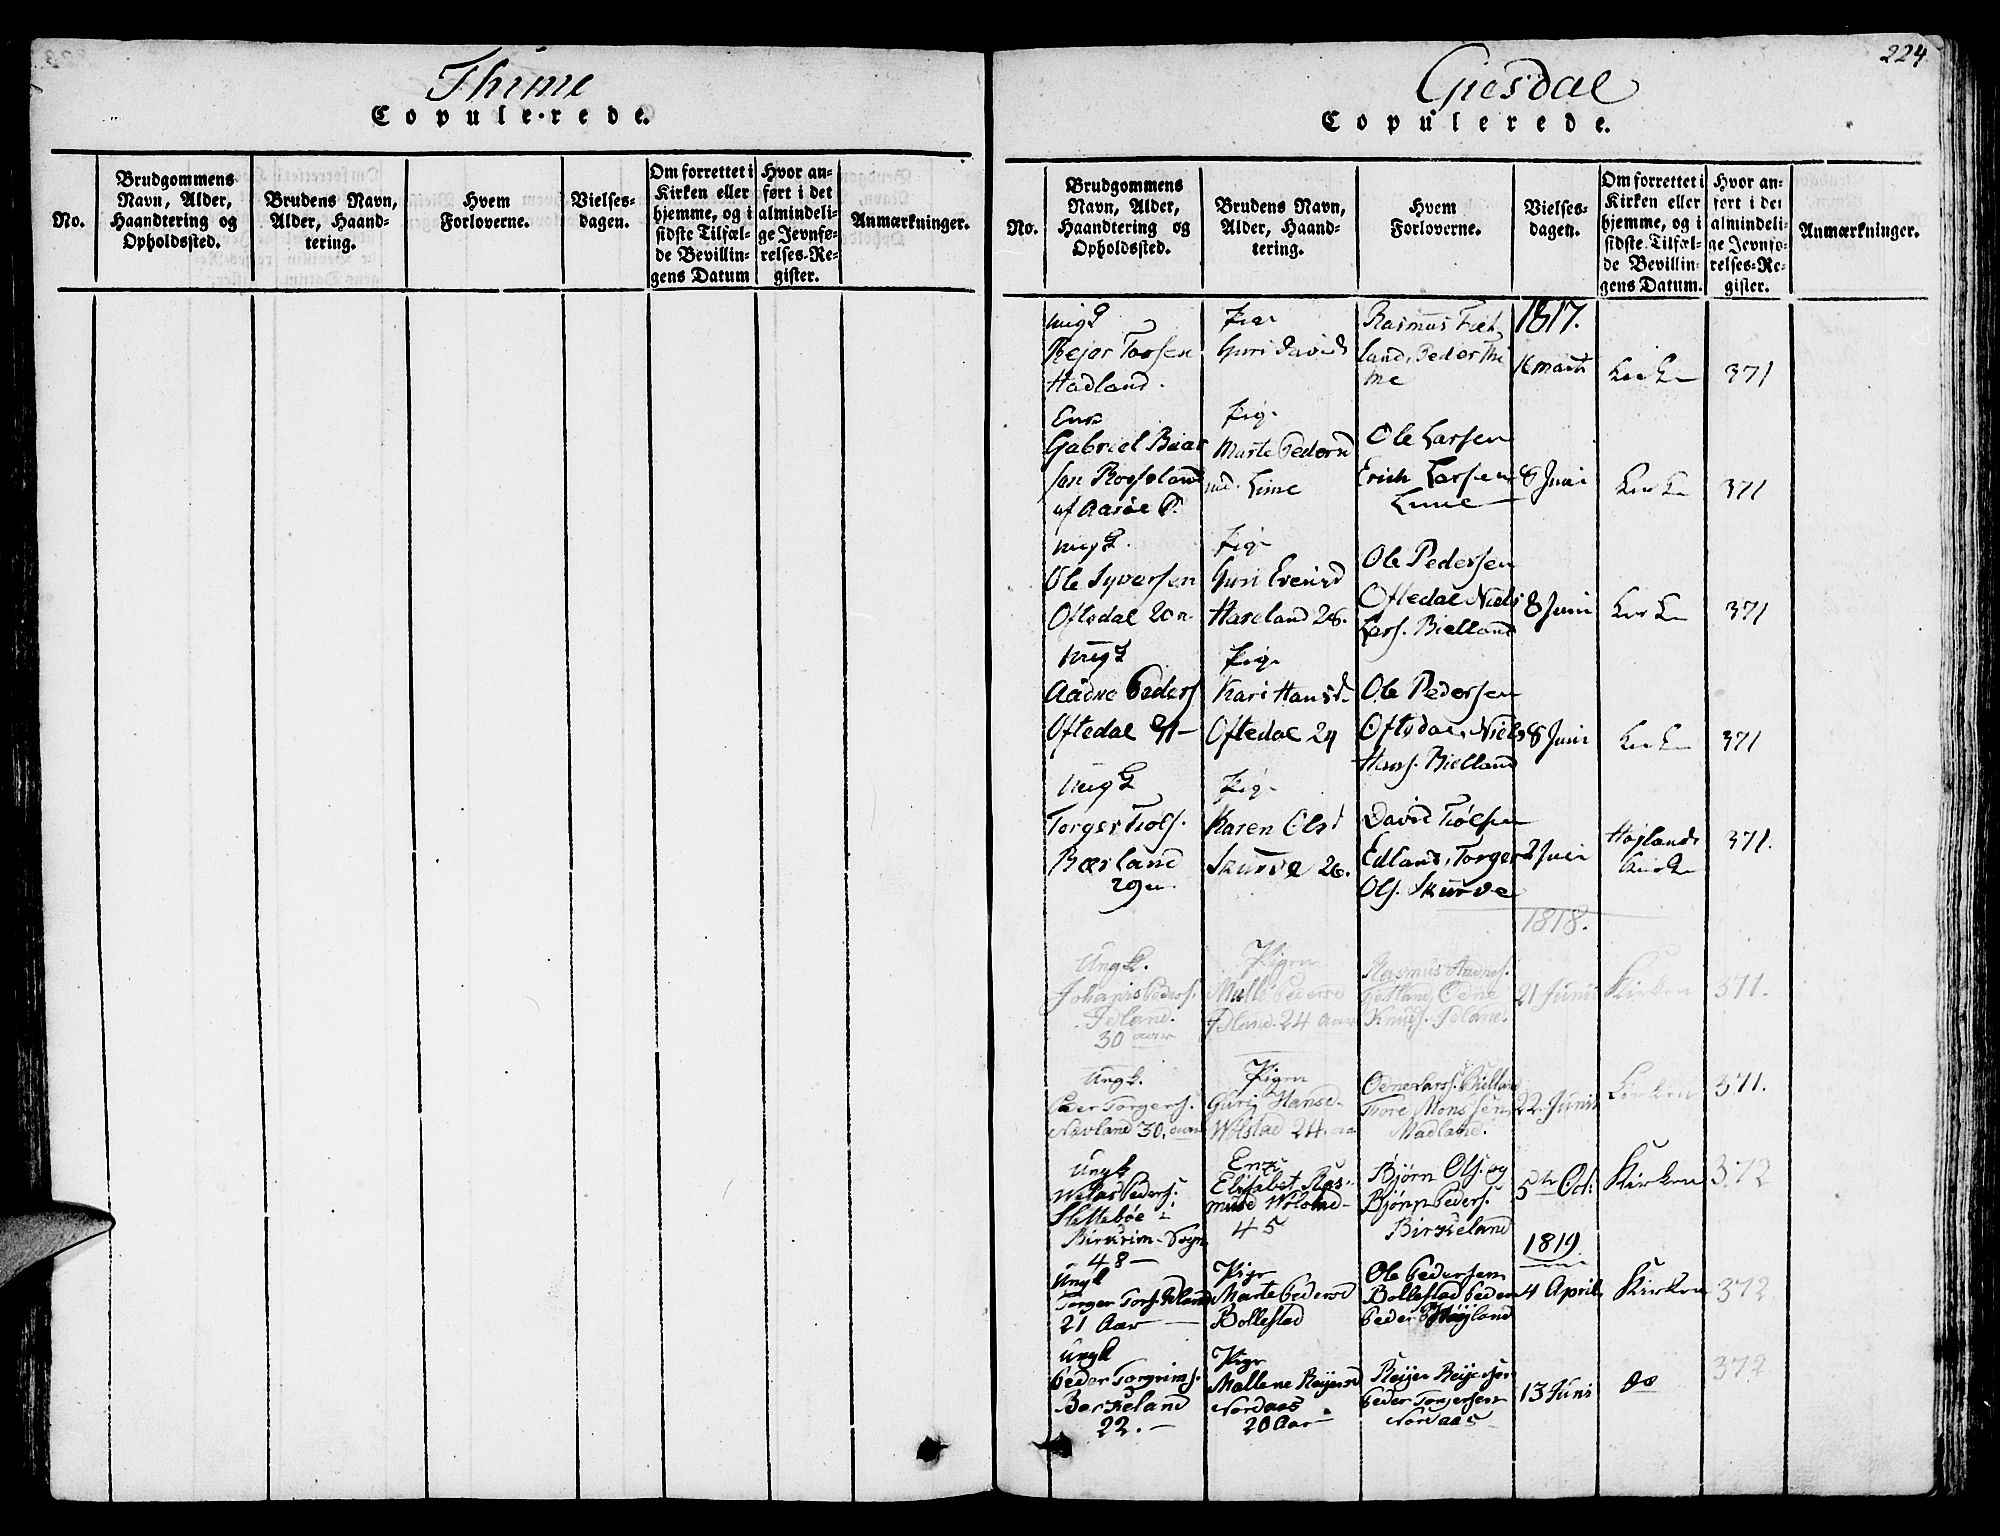 Thime
Copulerede.
No.
Brudgommens
Navn, Alder,
Haandtering og
Opholdssted.
Brudens Navn,
Alder, Haand-
tering.
Hvem
Forloverne.
Vielses-
dagen.
Om forrettet i
Kirken eller
hjemme, og i
sidste Tilfæl-
de Bevillin-
gens Datum
Hvor an-
ført i det
almindeli-
ge Jevnfø-
relses-Re-
gister.
Anmærkninger.
224
Giesdal
Copulerede.
No.
Brudgommens
Navn, Alder,
Haandtering og
Opholdssted.
Brudens Navn,
Alder, Haand-
tering.
Hvem
Forloverne.
Vielses-
dagen.
Om forrettet i
Kirken eller
hjemme, og i
sidste Tilfæl-
de Bevillin-
gens Datum.
Hvor an-
ført i det
almindeli-
ge Jevnfø-
relses-Re-
gister.
Anmærkninger.
1817.
ungk
Rejer Torsen
Hadland.
Pige
Guri Davids
Rasmus
land, Peder Thi
me
16 Marti
Kirken
371
Enk
Gabriel
sen Rosseland
af
Pig.
Marte Pedersd
Lime
Ole Larsen
Erich Larsen
Lime
8 Juni
Kirken
371
ungk.
Ole Syversen
Oftedal 20
Pig
Guri
Haveland 28.
Ole Pedersen
Oftedal Niels
Lars. Bielland
8 Juni
Kirken
371
ungk
Aadne Peders
Oftedal 21 —
Pig.
Kari Hansd.
Oftedal 24
Ole Pedersen
Oftedal, Niels
Hans. Bielland
8 Juni
Kirken
371
ungk
Torger Tiøls.
Bærland
29
Pig.
Karen Olsd
Skurve 26.
David Tiølsen
Edland, Torger
Ols. Skurve
2
Højlands
Kirke
371.
1818.
Ungk.
Johanis Peders.
Idland.
30 aar
Pigen
Malli Pedersd
Idland. 24 aar
Rasmus Aadnes.
Giesland, Odne
Knuds. Idland.
21 Junii
Kirken
371.
Ungk.
Peer Torgers.
Navland 30. aar
Pigen
Guri Hansd.
Wolstad 24. aa
Odne Lars. Bielland
Tore Monssen
Madland.
22. Junii
Kirken
371.
Ungk
Peders.
Slettebøe i
Birkrim-Sogn
48 —
Enk
Elisabet Ras-
musd
45
Bjørn Ols. og
Bjørn Peders.
Birkeland
5te Oct:
Kirken
372
1819
Ungk
Torger Tors.
21 Aar —
Pige
Marte Pedersd
Bollestad
Ole Pedersen
Bollestad Peder
Peder Høyland
4 April
Kirken
372
ungk
Peder Torgrims.
Berkeland
22. —
Pige
Mallene Reijersd
Nordaas
20 Aar
Reijer Reijersen
Peder Torgersen
Nordaas
13 Juni
do
372